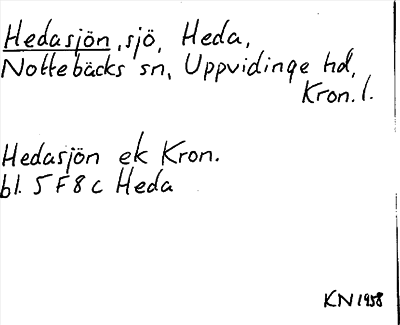 Hedasjön, sjö, Heda,
Nottebäcks sn, Uppvidinge hd,
Kron. l.
Hedasjön ek Kron.
bl. 5 F 8 c Heda
KN 1958